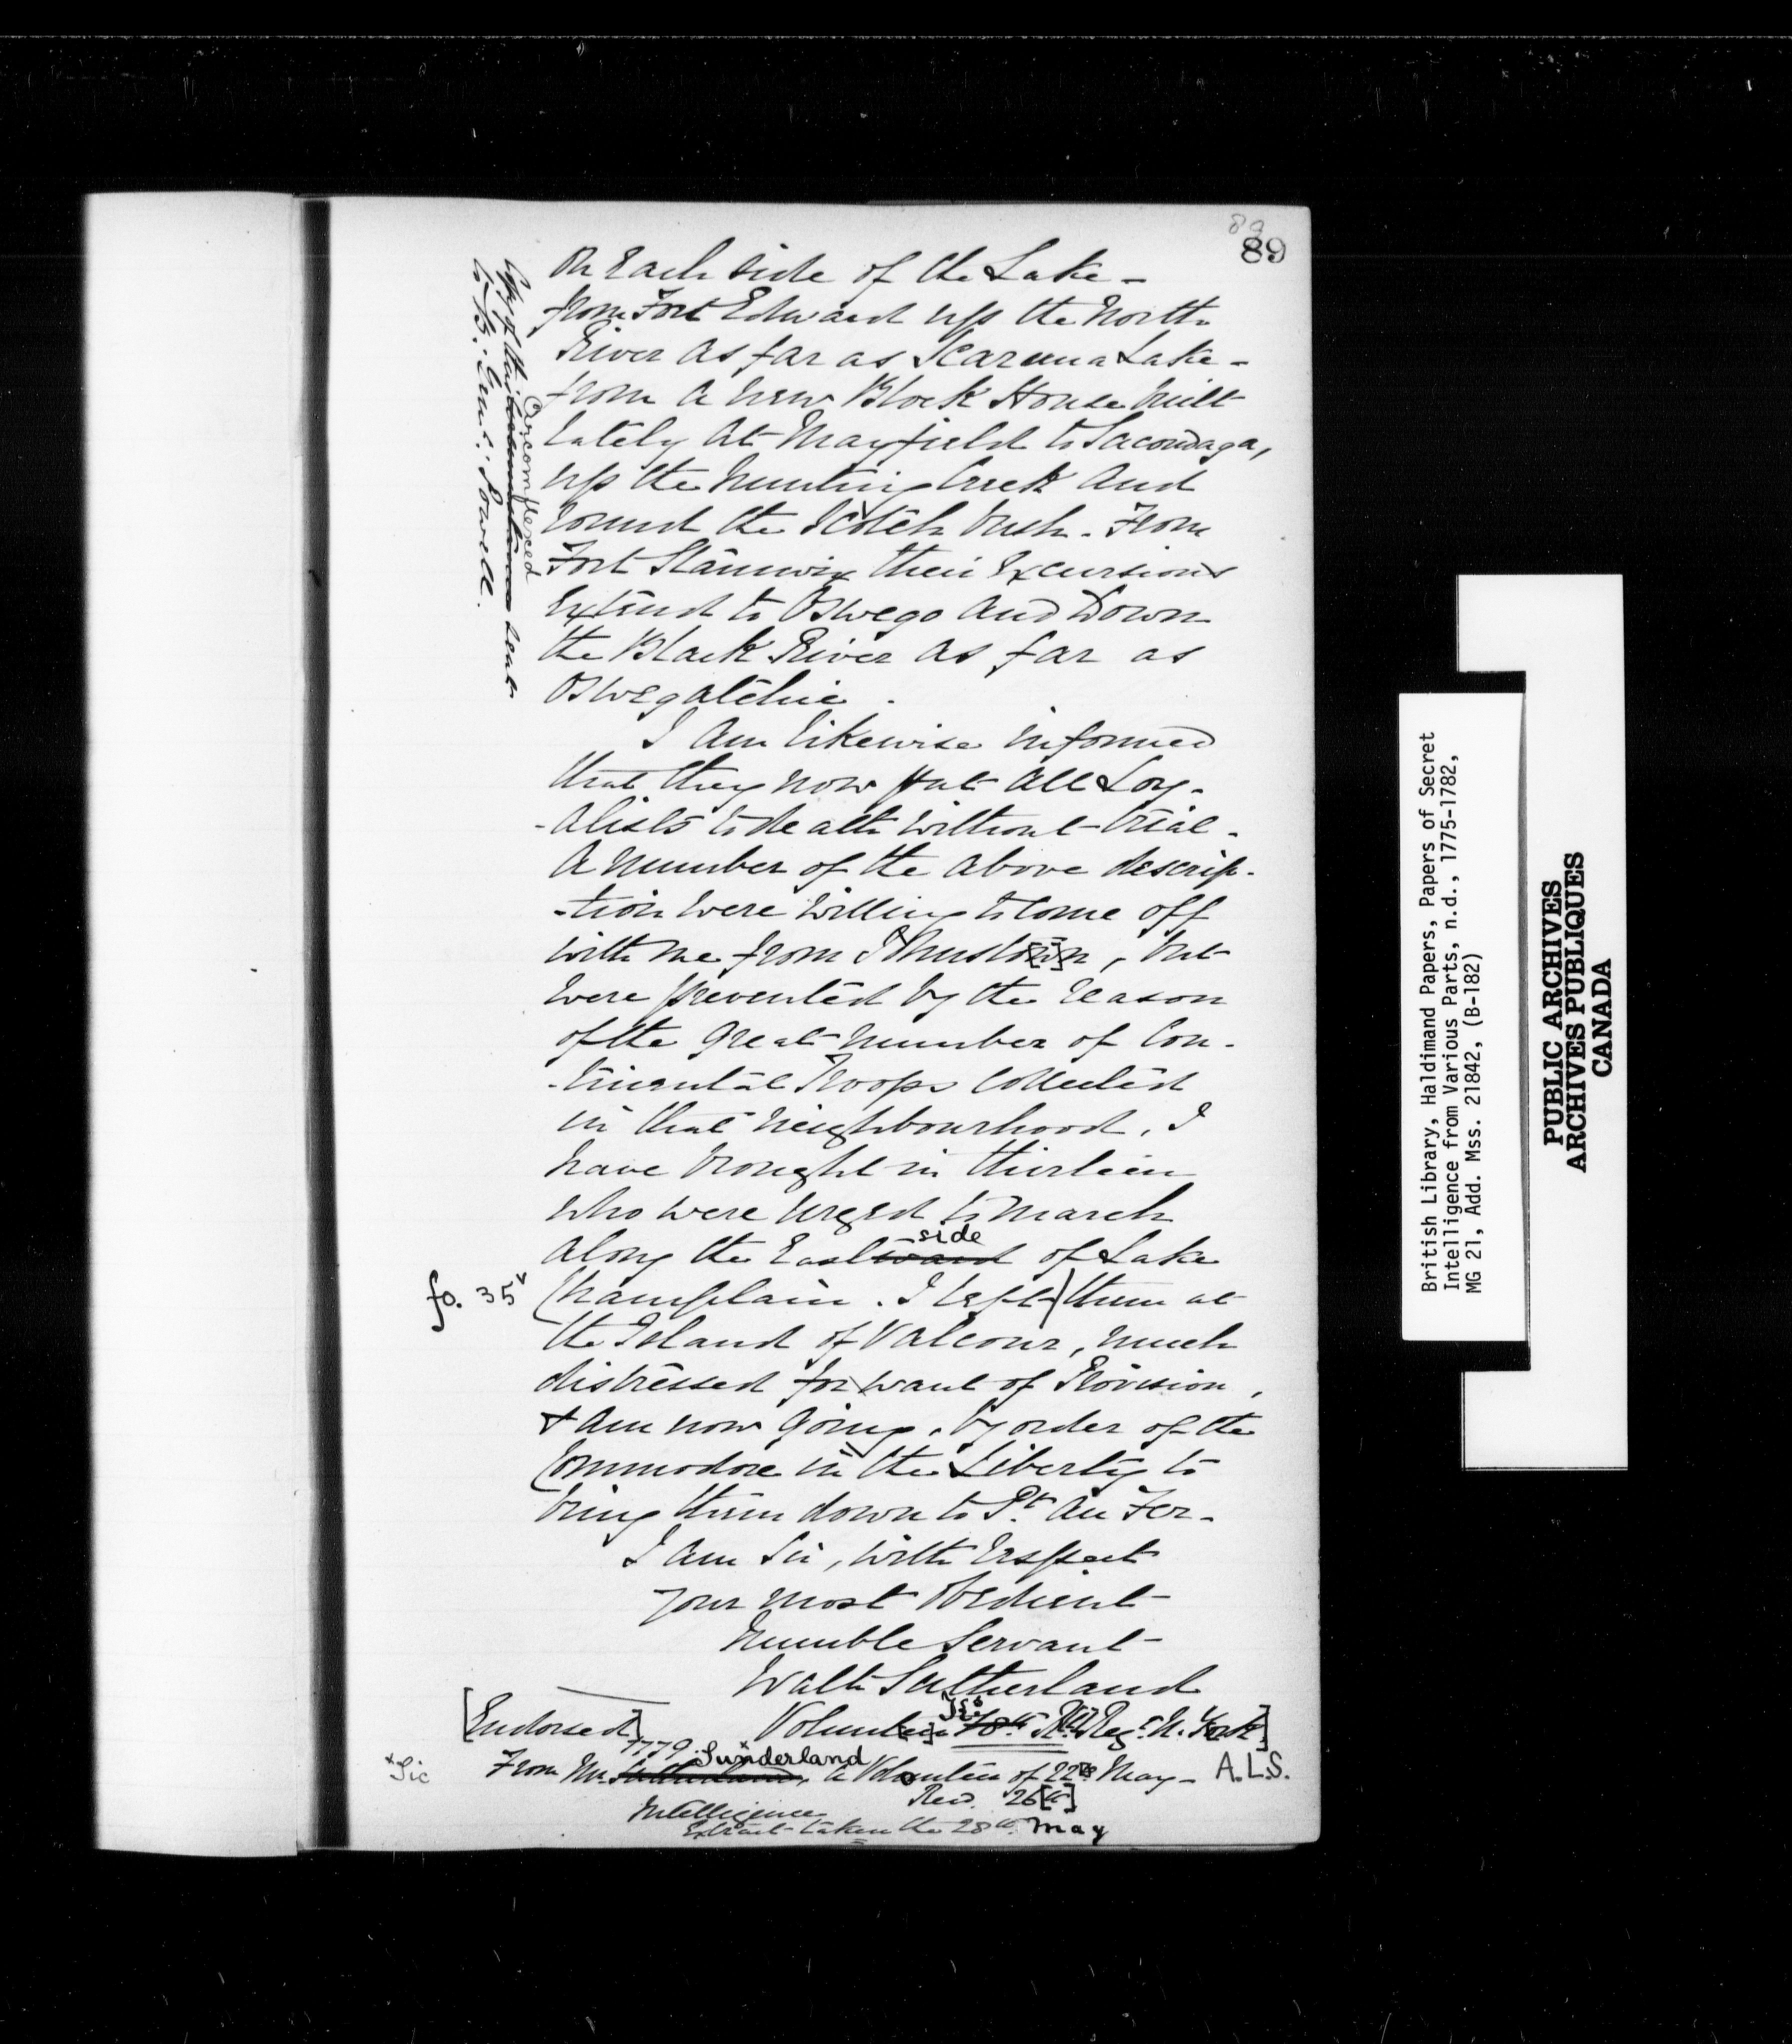 89
89
On Each side of the Lake -
from Fort Edward up the North
River as far as Scaroona Lake -
from a new Block House built
lately at Mayfield to Sacondaga,
up the hunting Creek and
round the Scotch Bush. From
Fort Stanwix their Excursions
Extend to Oswego and Down
the Black River as far as
Oswegatchie.
I am likewise informed
that they now put all Loy-
-alists to death without trial.
A number of the above descrip-
-tion were willing to come off
with me from Jhnsto[w]n, but
were prevented by the reason
of the great number of Con-
-tinental Troops Collected
in that neighbourhood. I
have brought in thirteen
who were urged to march
side
along the Eastward of Lake
fo. 35v
Champlain. I left them at
the Island of Valcour, much
distressed for want of Provision,
& am now going, by order of the
Commodore in the Liberty to
bring them down to Pt. au Fer.
I am Sir, with respect
your most Obedient
humble Servant
Walt Sutherland
[Endorsed]
Volunteer Regt. N. York]
1779 Sunderland
*Sic
From Mr. Sutherland, a Volunteer of 22d May - A.L.S.
Recd. 26[th]
Intelligence
Extract taken the 28th May
Copy of this
Circomflexed
sent
to B. Genl. Powell.
British Library, Haldimand Papers, Papers of Secret
Intelligence from Various Parts, n.d., 1775-1782,
MG 21, Add. Mss. 21842, (B-182)
PUBLIC ARCHIVES
ARCHIVES PUBLIQUES
CANADA